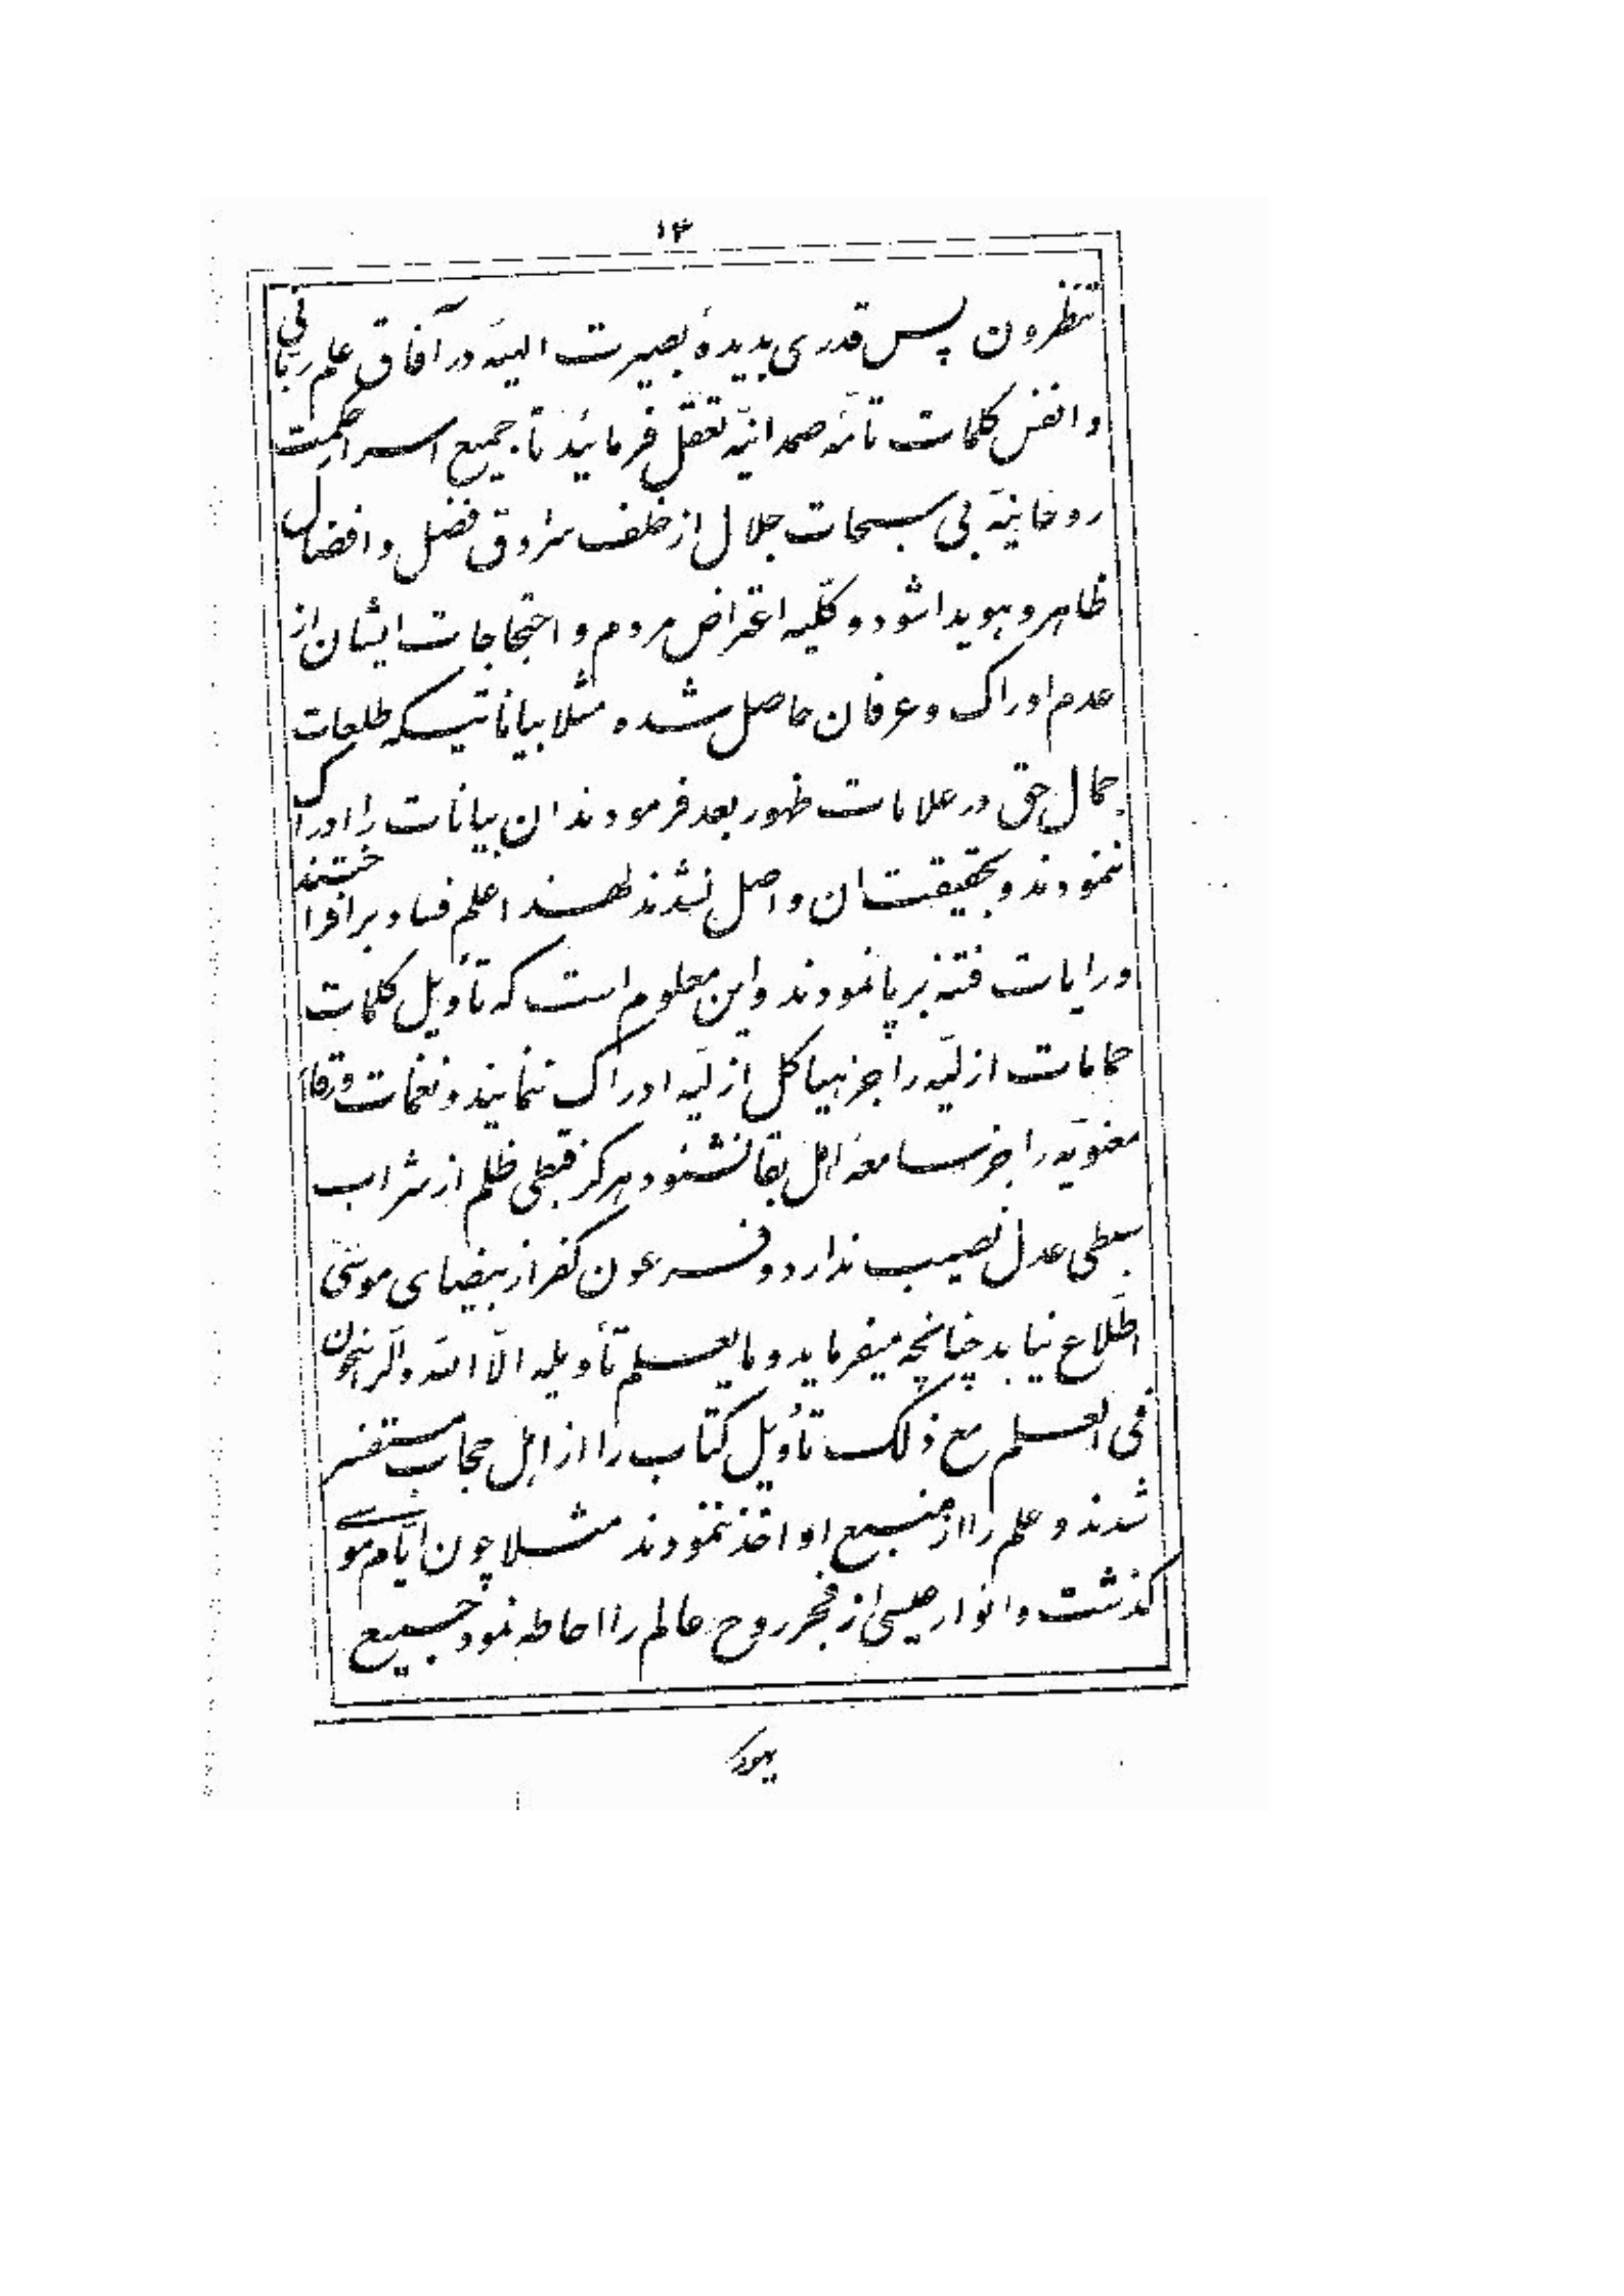 ۱۴
تنظرون پس قدری بدیدهٔ بصیرت الهیّه در آفاق علم ربّانی
و انفس کلمات تامّه صمدانیّه تعقّل فرمائید تا جمیع اسرار حکمت
روحانیّه بی سبحات جلال از خلف سرادق فضل و افضال
ظاهر و هویدا شود و کلّیه اعتراض مردم و احتجاجات ایشان از
عدم ادراک و عرفان حاصل شده مثلا بیاناتیکه طلعات
جمال حق در علامات ظهور بعد فرمودند ان بیانات را ادراک
ننمودند و بحقیقت ان واصل نشدند لهذا علم فساد برافراختند
و رایات فتنه برپا نمودند و این معلوم است که تأویل کلمات
حمامات ازلیّه را جز هیاکل ازلیّه ادراک ننمایند و نغمات ورقاء
معنویّه را جز سامعهٔ اهل بقا نشنود هرگز قبطی ظلم از شراب
سبطی عدل نصیب ندارد و فرعون کفر از بیضای موسی
اطّلاع نیابد چنانچه میفرماید و ما یعلم تأویله الّا الله و الرّاسخون
فی العلم مع ذلک تأویل کتاب را از اهل حجاب مستفسر
شدند و علم را از منبع او اخذ ننمودند مثلا چون ایّام موسی
گذشت و انوار عیسی از فجر روح عالم را احاطه نمود جمیع
یهود